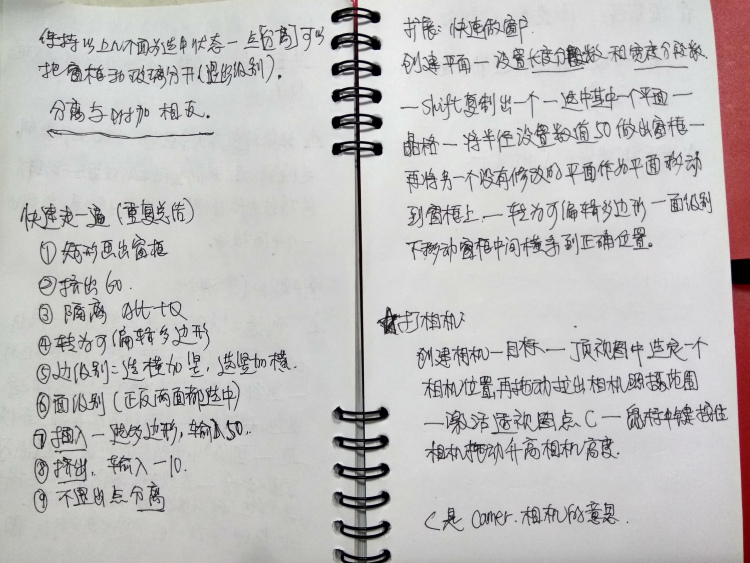 保持以上几个面为选中状态一点[分离]可以
把窗框和玻璃分开(显形级别).
分离与附加 相反.
快速走一遍(重复总结)
① 矩形画出窗框
② 挤出 60.
③ 隔离 alt+Q
④ 转为可编辑多边形
⑤ 边级别:选横加竖,选竖加横.
⑥ 面级别(正反两面都选中)
⑦ 插入一选多边形,输入50.
⑧ 挤出.输入-10.
⑨ 不退出点分离
扩展:快速做窗户.
创建平面一设置长度分段数和宽度分段数
一shift复制出一个一选中其中一个平面一
晶格一将半径设置数值50做出窗框一
再将另一个没有修改的平面作为平面移动
到窗框上.一转为可编辑多边形一面级别
下移动窗框中间横条到正确位置。
★打相机:
创建相机一目标.一顶视图中选定一个
相机位置,再拖动拉出相机照摄范围
一激活透视图点C一鼠标中键按住
相机拖动升高相机高度.
C是 Camer.相机的意思.